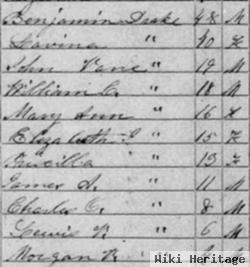 Benjamin Drake 48 M
Lavina " 40 F
John Vane " 19 M
William C. " 18 M
Mary Ann " 16 F
Elizabeth " 15 F
Priscilla " 13 F
James A. " 11 M
Charles C. " 8 M
Lewis " 6 M
Morgan "
Wiki Heritage